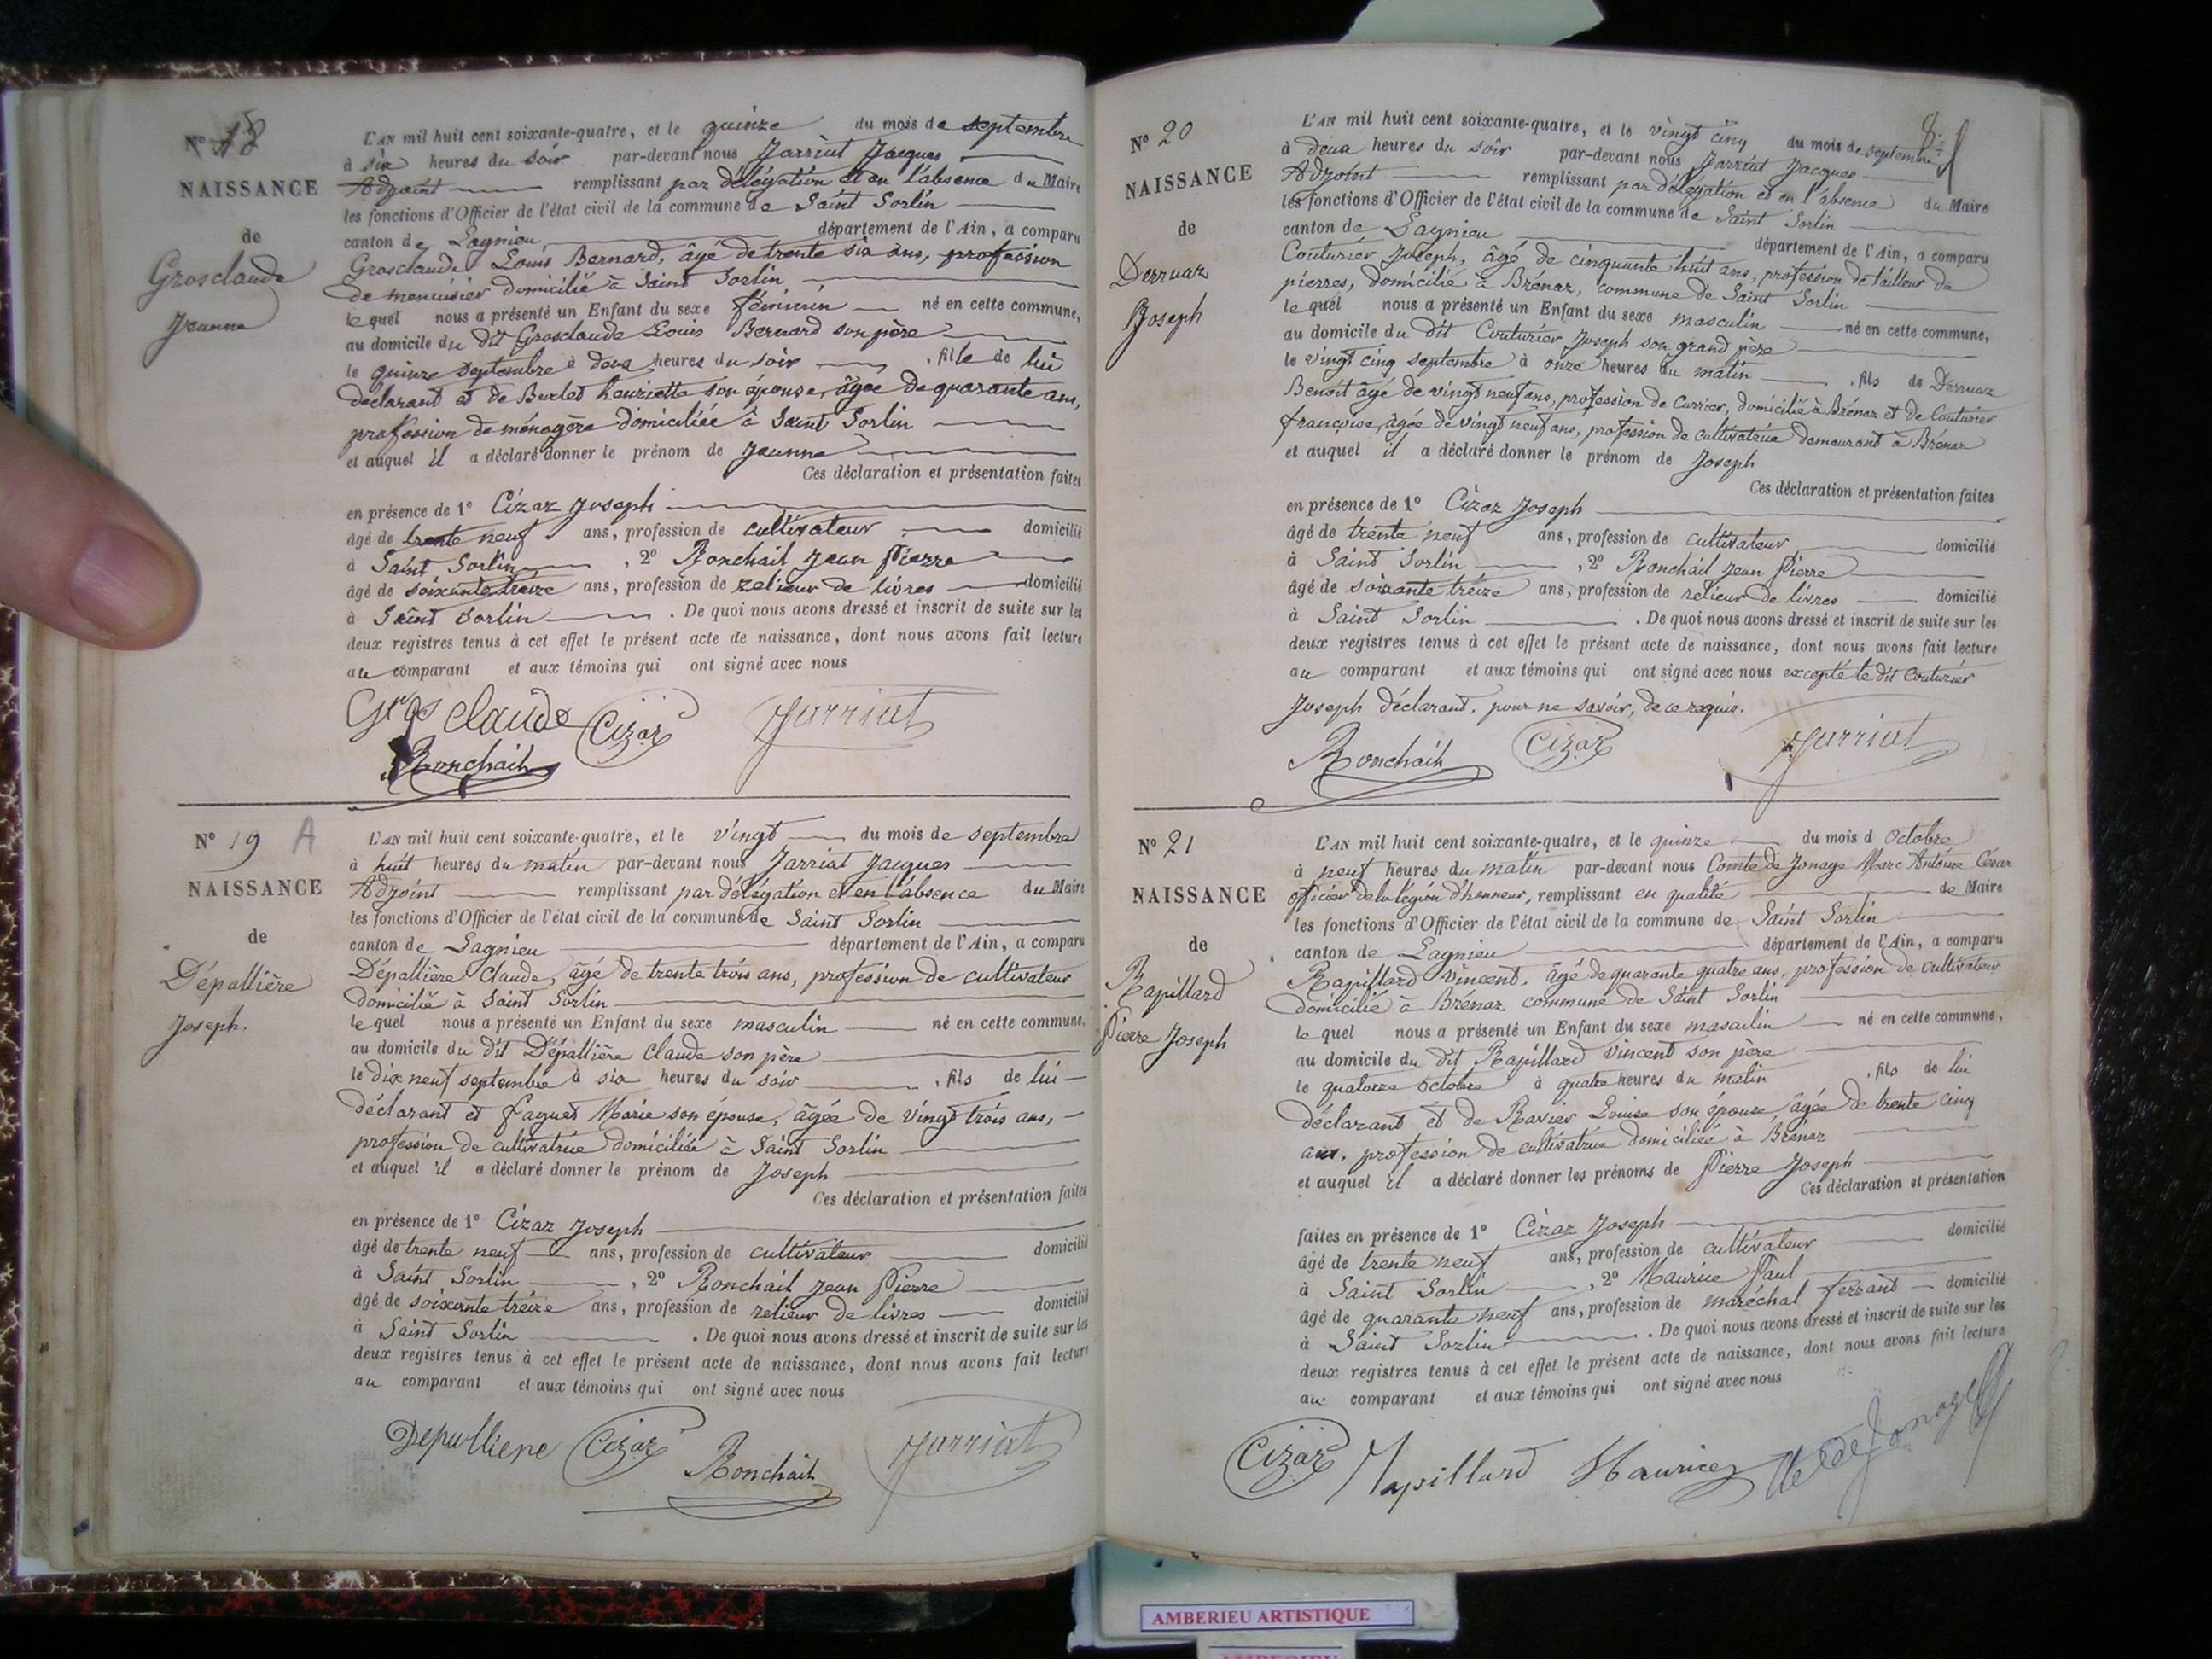 Nº 18
NAISSANCE
de
Grosclaude
Jeanne
L'AN mil huit cent soixante-quatre, et le quinze du mois de septembre
à six heures du soir par-devant nous Jarriat Jacques
Adjoint remplissant par délégation et en l'absence du Maire
les fonctions d'Officier de l'état civil de la commune de Saint Sorlin
canton de Lagnieu département de l'Ain, a comparu
Grosclaude Louis Bernard, âgé de trente six ans, profession
de menuisier domicilié à Saint Sorlin
lequel nous a présenté un Enfant du sexe féminin né en cette commune,
au domicile du dit Grosclaude Louis Bernard son père
le quinze septembre à deux heures du soir , fille de lui
déclarant et de Burlet henriette son épouse, âgée de quarante ans,
profession de ménagère domiciliée à Saint Sorlin
et auquel il a déclaré donner le prénom de Jeanne
Ces déclaration et présentation faites
en présence de 1º Cizaz Joseph
âgé de trente neuf ans, profession de cultivateur domicilié
à Saint Sorlin , 2º Ronchail Jean Pierre
âgé de soixante treize ans, profession de relieur de livres domicilié
à Saint Sorlin . De quoi nous avons dressé et inscrit de suite sur les
deux registres tenus à cet effet le présent acte de naissance, dont nous avons fait lecture
au comparant et aux témoins qui ont signé avec nous
Grosclaude Cizaz Jarriat
Ronchail
Nº 19 A
NAISSANCE
de
Dépallière
Joseph.
L'AN mil huit cent soixante-quatre, et le vingt du mois de septembre
à huit heures du matin par-devant nous Jarriat Jacques
Adjoint remplissant par délégation et en l'absence du Maire
les fonctions d'Officier de l'état civil de la commune de Saint Sorlin
canton de Lagnieu département de l'Ain, a comparu
Dépallière Claude, âgé de trente trois ans, profession de cultivateur
domicilié à Saint Sorlin
lequel nous a présenté un Enfant du sexe masculin né en cette commune,
au domicile du dit Dépallière Claude son père
le dix neuf septembre à six heures du soir , fils de lui
déclarant et Faguet Marie son épouse, âgée de vingt trois ans,
profession de cultivatrice domiciliée à Saint Sorlin
et auquel il a déclaré donner le prénom de Joseph
Ces déclaration et présentation faites
en présence de 1º Cizaz Joseph
âgé de trente neuf ans, profession de cultivateur domicilié
à Saint Sorlin , 2º Ronchail Jean Pierre
âgé de soixante treize ans, profession de relieur de livres domicilié
à Saint Sorlin . De quoi nous avons dressé et inscrit de suite sur les
deux registres tenus à cet effet le présent acte de naissance, dont nous avons fait lecture
au comparant et aux témoins qui ont signé avec nous
Depalliere Cizaz Ronchail Jarriat
8
Nº 20
NAISSANCE
de
Derruaz
Joseph
L'AN mil huit cent soixante-quatre, et le vingt cinq du mois de septembre
à deux heures du soir par-devant nous Jarriat Jacques
Adjoint remplissant par délégation et en l'absence du Maire
les fonctions d'Officier de l'état civil de la commune de Saint Sorlin
canton de Lagnieu département de l'Ain, a comparu
Couturier Joseph, âgé de cinquante huit ans, profession de tailleur de
pierres, domicilié à Brénaz, commune de Saint Sorlin
lequel nous a présenté un Enfant du sexe masculin né en cette commune,
au domicile du dit Couturier Joseph son grand père
le vingt cinq septembre à onze heures du matin , fils de Derruaz
Benoit âgé de vingt neuf ans, profession de Carrier, domicilié à Brénaz et de Couturier
françoise, âgée de vingt neuf ans, profession de cultivatrice demeurant à Brénaz
et auquel il a déclaré donner le prénom de Joseph
Ces déclaration et présentation faites
en présence de 1º Cizaz Joseph
âgé de trente neuf ans, profession de cultivateur domicilié
à Saint Sorlin , 2º Ronchail Jean Pierre
âgé de soixante treize ans, profession de relieur de livres domicilié
à Saint Sorlin . De quoi nous avons dressé et inscrit de suite sur les
deux registres tenus à cet effet le présent acte de naissance, dont nous avons fait lecture
au comparant et aux témoins qui ont signé avec nous excepté le dit Couturier
Joseph déclarant, pour ne savoir, de ce requis.
Ronchail Cizaz Jarriat
Nº 21
NAISSANCE
de
Rapillard
Pierre Joseph
L'AN mil huit cent soixante-quatre, et le quinze du mois d Octobre
à neuf heures du matin par-devant nous Comte de Jonage Marc Antoine César
officier de la légion d'honneur, remplissant en qualité de Maire
les fonctions d'Officier de l'état civil de la commune de Saint Sorlin
canton de Lagnieu département de l'Ain, a comparu
Rapillard Vincent, âgé de quarante quatre ans, profession de cultivateur
domicilié à Brénaz commune de Saint Sorlin
lequel nous a présenté un Enfant du sexe masculin né en cette commune,
au domicile du dit Rapillard Vincent son père
le quatorze octobre à quatre heures du matin , fils de lui
déclarant et de Ravier Louise son épouse, âgée de trente cinq
ans, profession de cultivatrice domiciliée à Brénaz
et auquel il a déclaré donner les prénoms de Pierre Joseph
Ces déclaration et présentation
faites en présence de 1º Cizaz Joseph
âgé de trente neuf ans, profession de cultivateur domicilié
à Saint Sorlin , 2º Maurice Paul
âgé de quarante neuf ans, profession de maréchal ferrant domicilié
à Saint Sorlin . De quoi nous avons dressé et inscrit de suite sur les
deux registres tenus à cet effet le présent acte de naissance, dont nous avons fait lecture
au comparant et aux témoins qui ont signé avec nous
Cizaz Rapillard Maurice de Jonage
AMBERIEU ARTISTIQUE
AMBERIEU